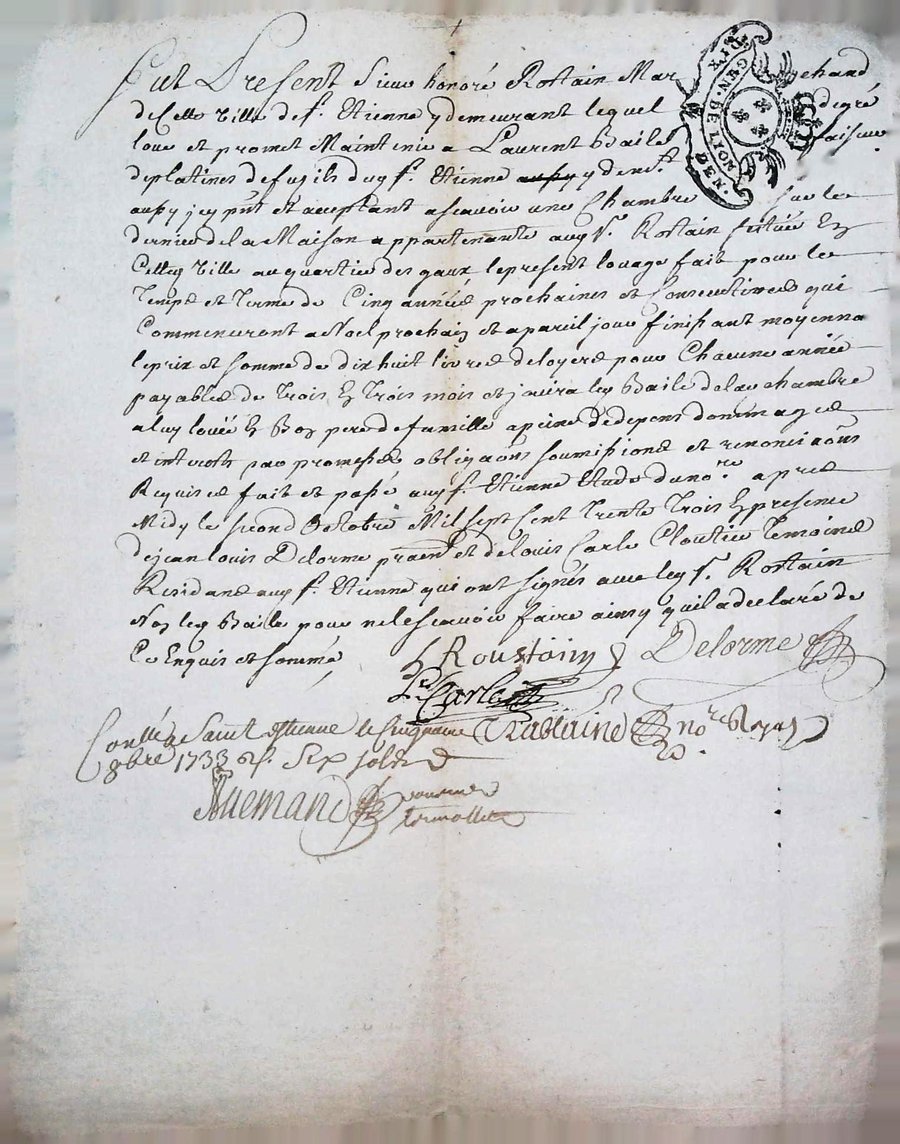 Fut Present Sieur honoré Rostain Marchand
de Cette Ville de St. Etienne y demeurant lequel de gré
loue et promet Maintenir a Laurent Baile faiseur
de platines de fusils dud St. Etienne y demt.
aussy icy pnt et acceptant ascavoir une Chambre sur le
dernier de la Maison appartenante aud Sr. Rostain scituée En
Cette Ville au quartier des gaux le present louage fait pour le
Temps et Terme de Cinq années prochaines et Consecutives qui
Commenceront a Noel prochain et a pareil jour finissant moyennant
le prix et somme de dixhuit livres de loyers pour Chacune année
payables de Trois En Trois mois et jouira led Baile de lad chambre
a luy louée En Bon pere de famille a peine de depens dommages
et interests par promesses obligaons soumissions et renonciaons
Requises fait et passé aud St. Etienne Etude du nore. apres
Midy le second Octobre Mil sept Cent Trente Trois En presence
de jean louis Delorme pratn et de louis Carle Cloutier Temoins
Residans aud St. Etienne qui ont signés avec led Sr. Rostain
Non led Baille pour ne le scavoir faire ainsy quil a declaré de
Ce Enquis et sommé
h Roustain Delorme
Ls Carle
Trablaine nore Royal
Conllé a Saint Etienne le Cinquieme
8bre 1733 R. Six sols
Allemand